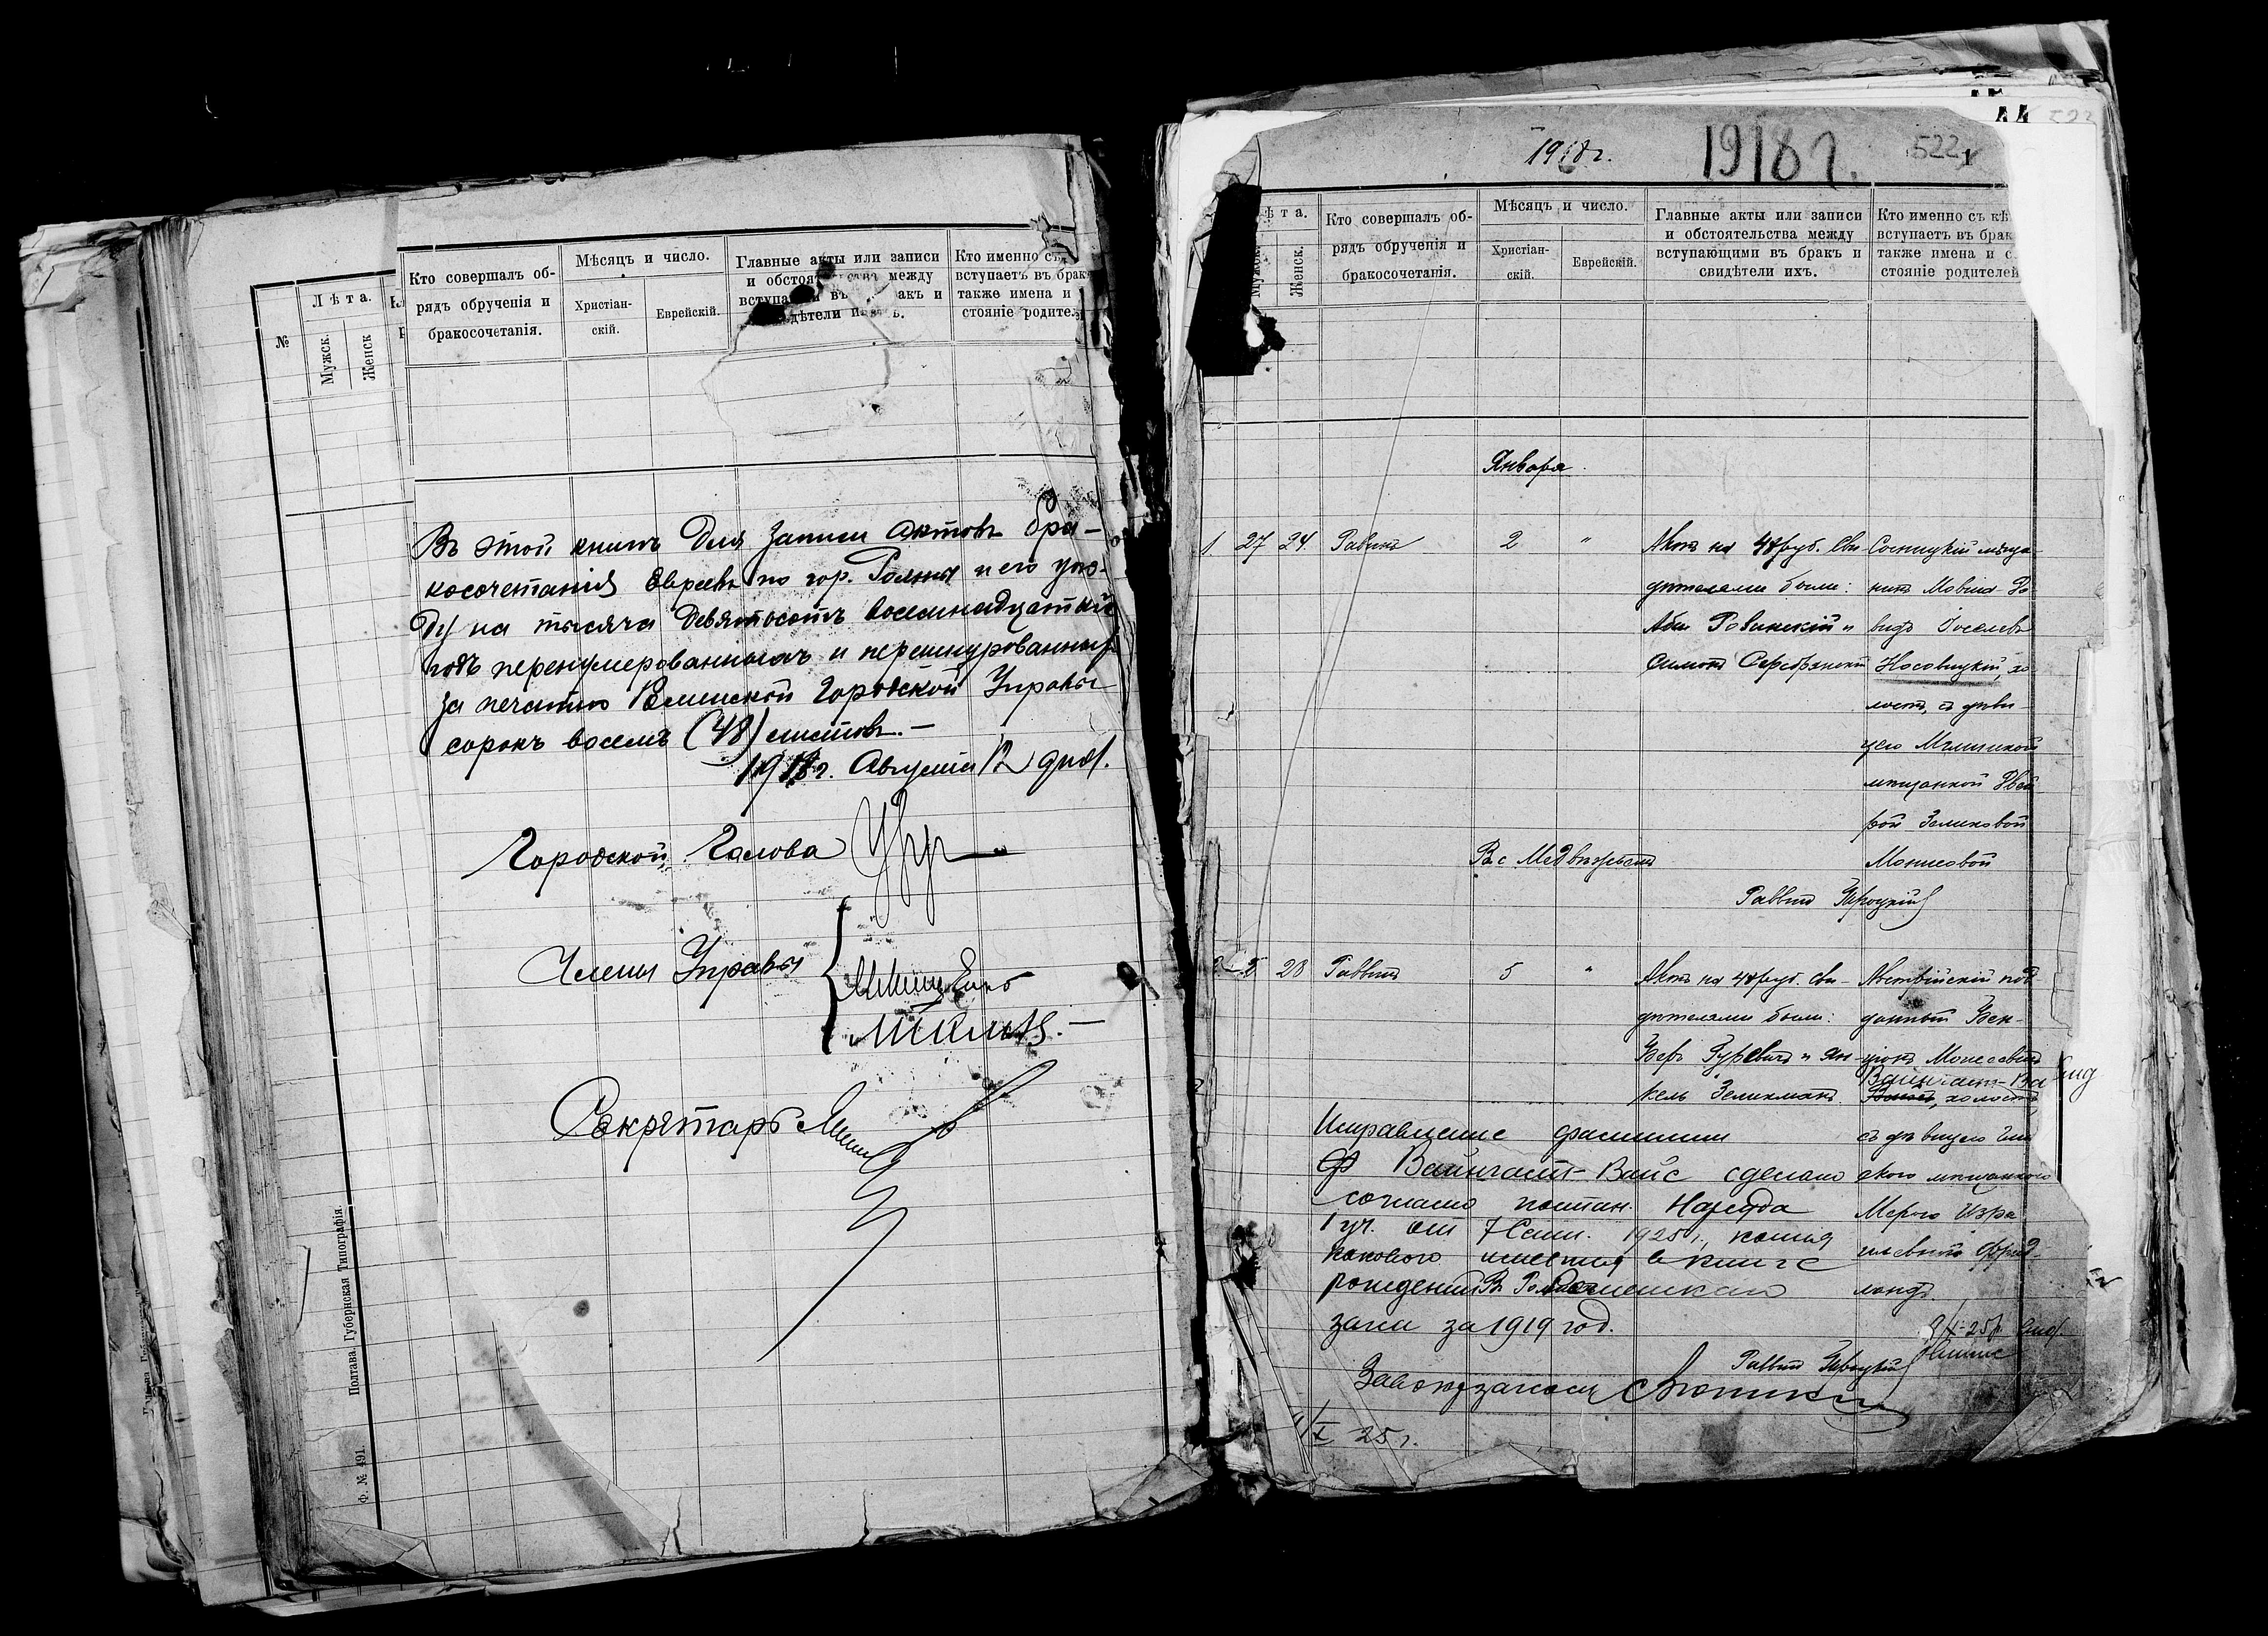 №
Лѣта.
Мужск.
Женск
Кто совершалъ об-
рядъ обрученія и
бракосочетанія.
Мѣсяцъ и число.
Христіан-
скій.
Еврейскій.
Главные акты или записи
и обстоят между
вступа въ акъ и
дѣтели
Кто именно
вступаетъ въ брак
также имена и
стояніе родител
Въ этой книгѣ для записи актовъ бра-
косочетанія Евреевъ по гор. Ромны и его уѣз-
ду на тысяча девятьсотъ восемнадцатый
годъ перенумерованныхъ и перешнурованныхъ
за печатью Роменской Городской Управы
сорокъ восемь (48) листовъ.—
1918г. Августа 12 дня.
Городской Голова
Члены Управы
Секретарь
Полтава. Губернская Типографія.
Ф. № 491.
1918г.
1918г.
522
1
ѣта.
Мужск.
Женск.
Кто совершалъ об-
рядъ обрученія и
бракосочетанія.
Мѣсяцъ и число.
Христіан-
скій.
Еврейскій.
Главные акты или записи
и обстоятельства между
вступающими въ бракъ и
свидѣтели ихъ.
Кто именно съ кѣ
вступаетъ въ брак
также имена и с
стояніе родителей
Января
1 27 24 Раввинъ 2 " Актъ на 48 руб. Сви-
дѣтелями были:
Аба Равинскій и
Симонъ Серебрянскій
Сосницкій мѣща-
нинъ Мовша Да-
видъ Іоселевъ
Носовицкій, хо-
лостъ, съ дѣви-
цею Мглинской
мѣщанкой Двей-
рой Зеликовой
Моисеовой
Въ с Медвѣжьемъ
Раввинъ Троцкій
2 28 Раввинъ 5 " Актъ на 48 руб. Сви-
дѣтелями были:
Беръ Гуревичъ и Ян-
кель Зеликманъ.
Австрійскій под-
данный Бен-
ціонъ Моисеевичъ
Вайнгаст-Ва
холостъ
съ дѣвицею
мѣщанкою
Мерою Изра-
илевной Фрид-
ландъ
Исправление фамилии
Вайнгаст-Вайс сделано
согласно постан. Нарсуда
1 уч. от 7 Сент. 1925г., копия
какового имеется в книге
рождений В Роменском
загсе за 1919 год.
Раввинъ Троцкій
Завокрзагсом
25г.